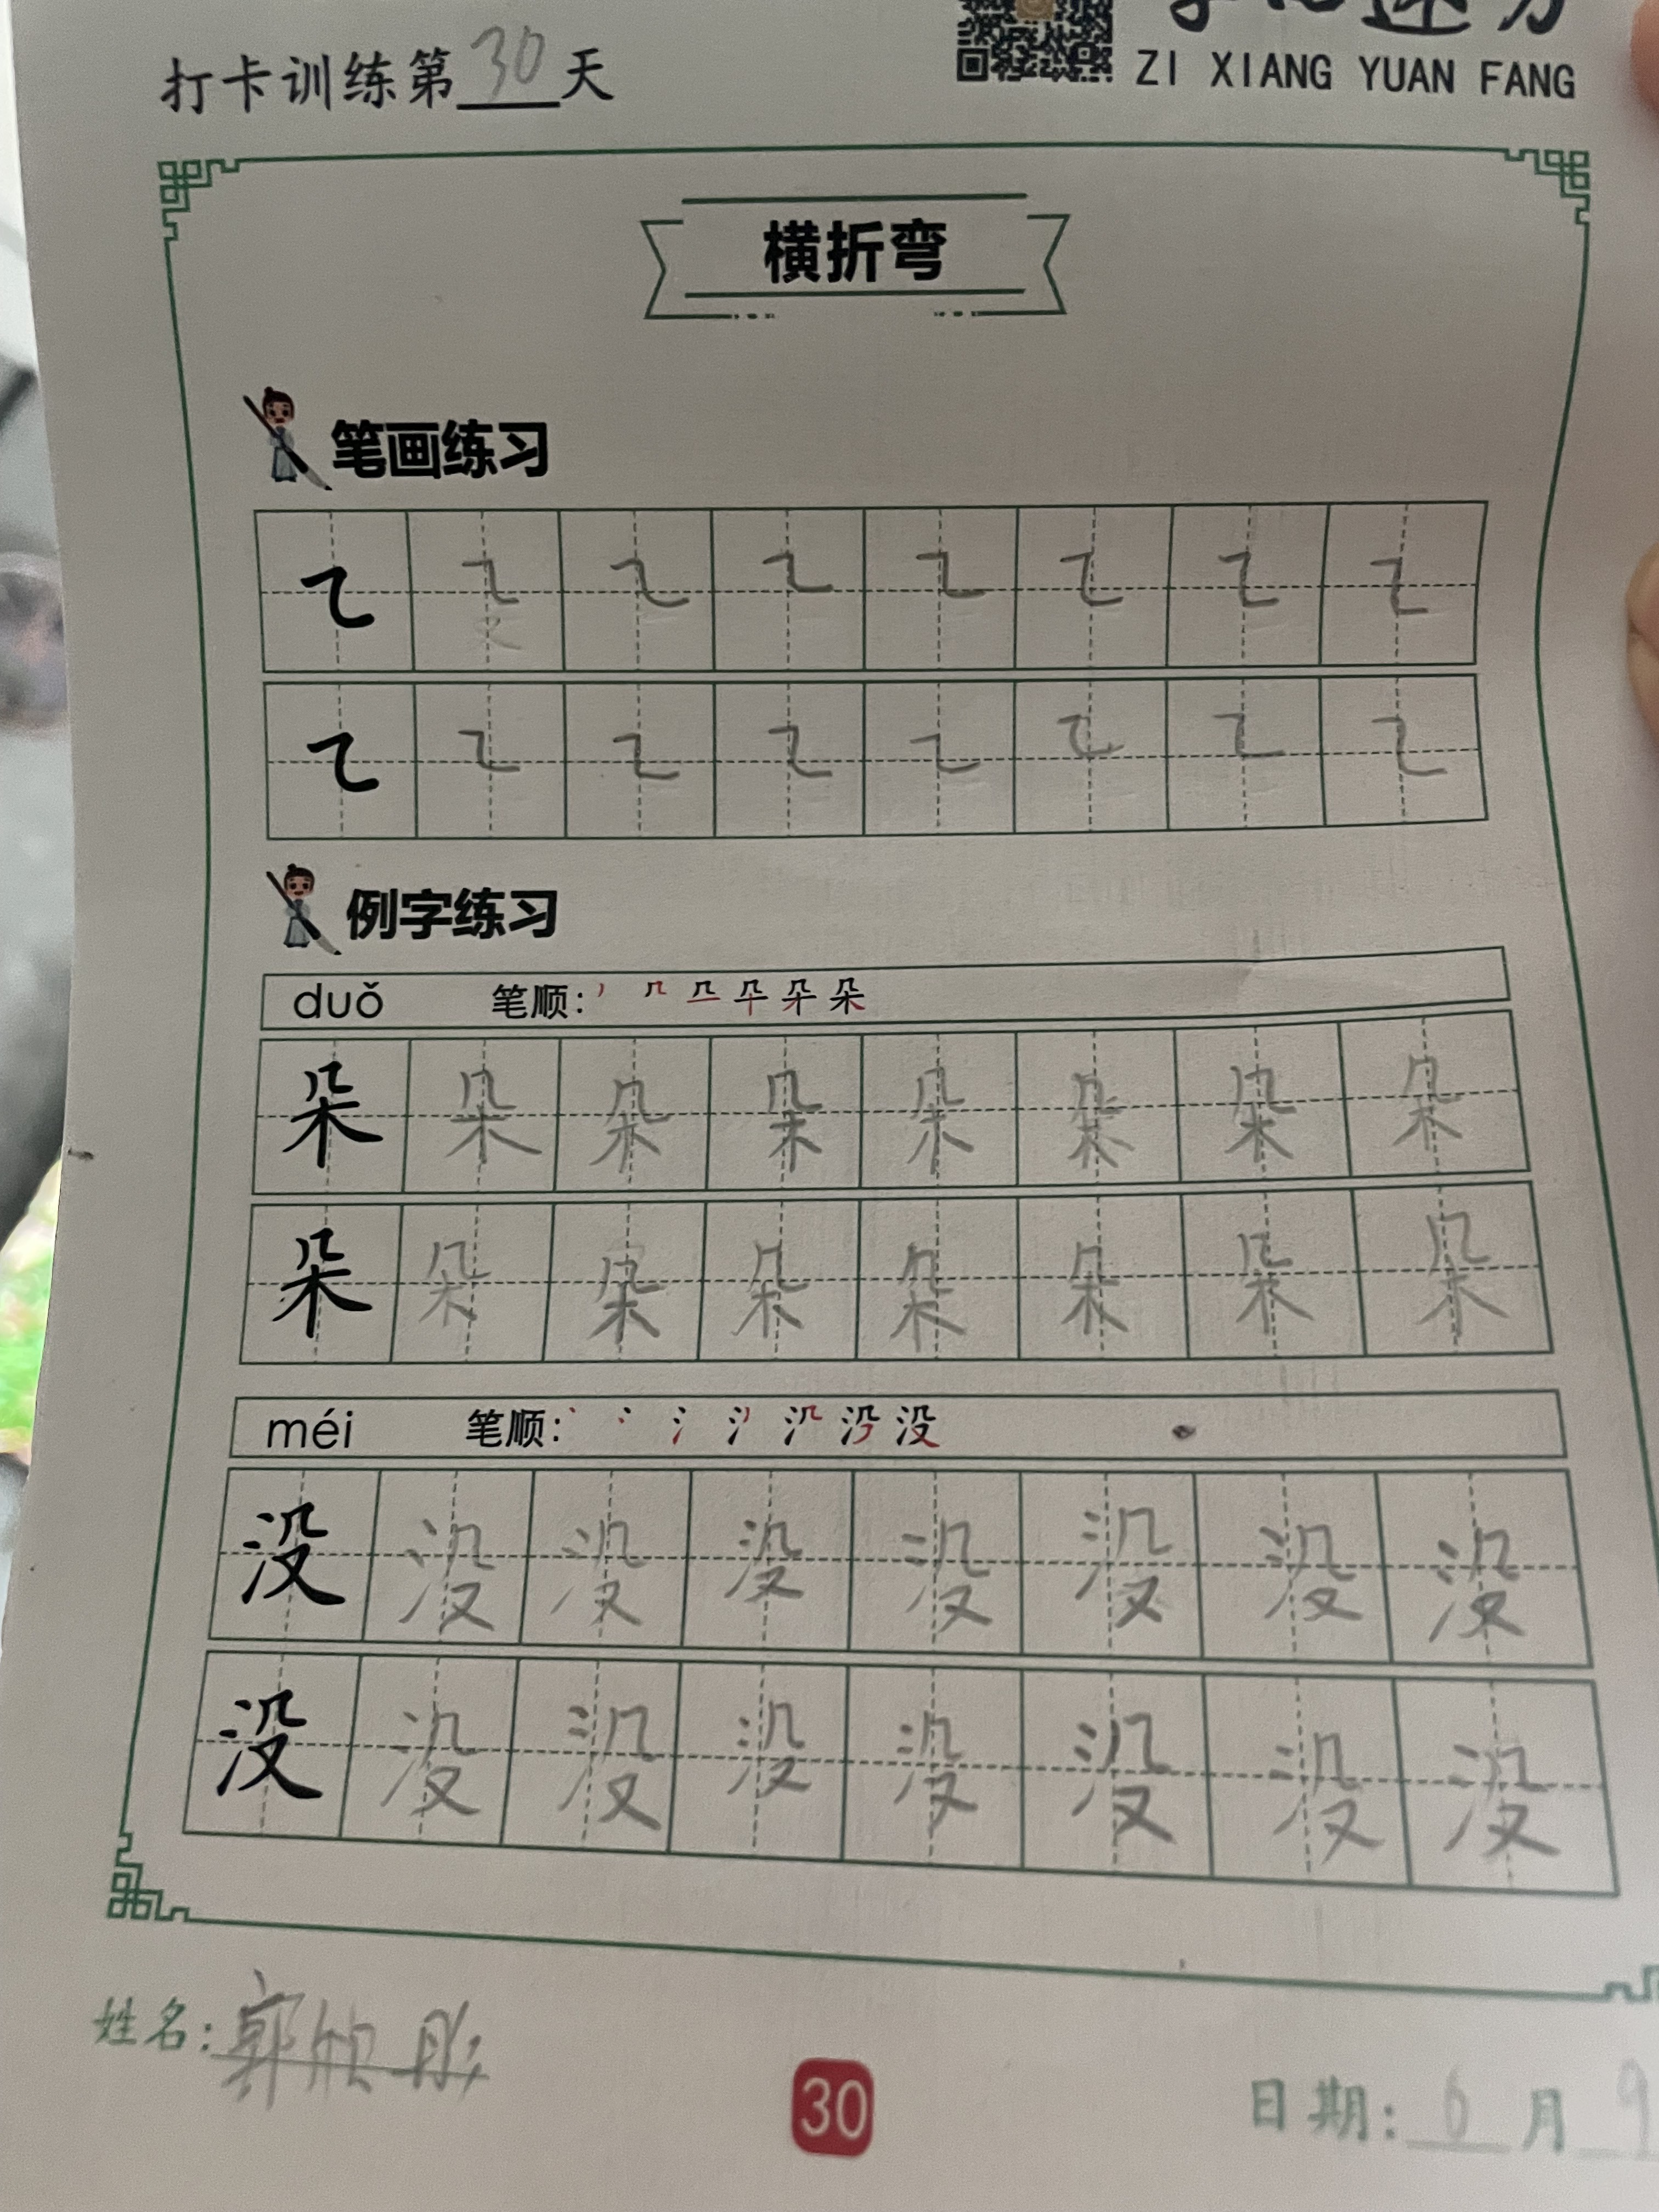 打卡训练第30天
ZI XIANG YUAN FANG
横折弯
笔画练习
例字练习
duǒ 笔顺:
朵 朵 朵 朵 朵 朵 朵 朵
朵 朵 朵 朵 朵 朵 朵 朵
méi 笔顺:
没 没 没 没 没 没 没 没
没 没 没 没 没 没 没 没
姓名:郭欣彤
30
日期: 6 月 9